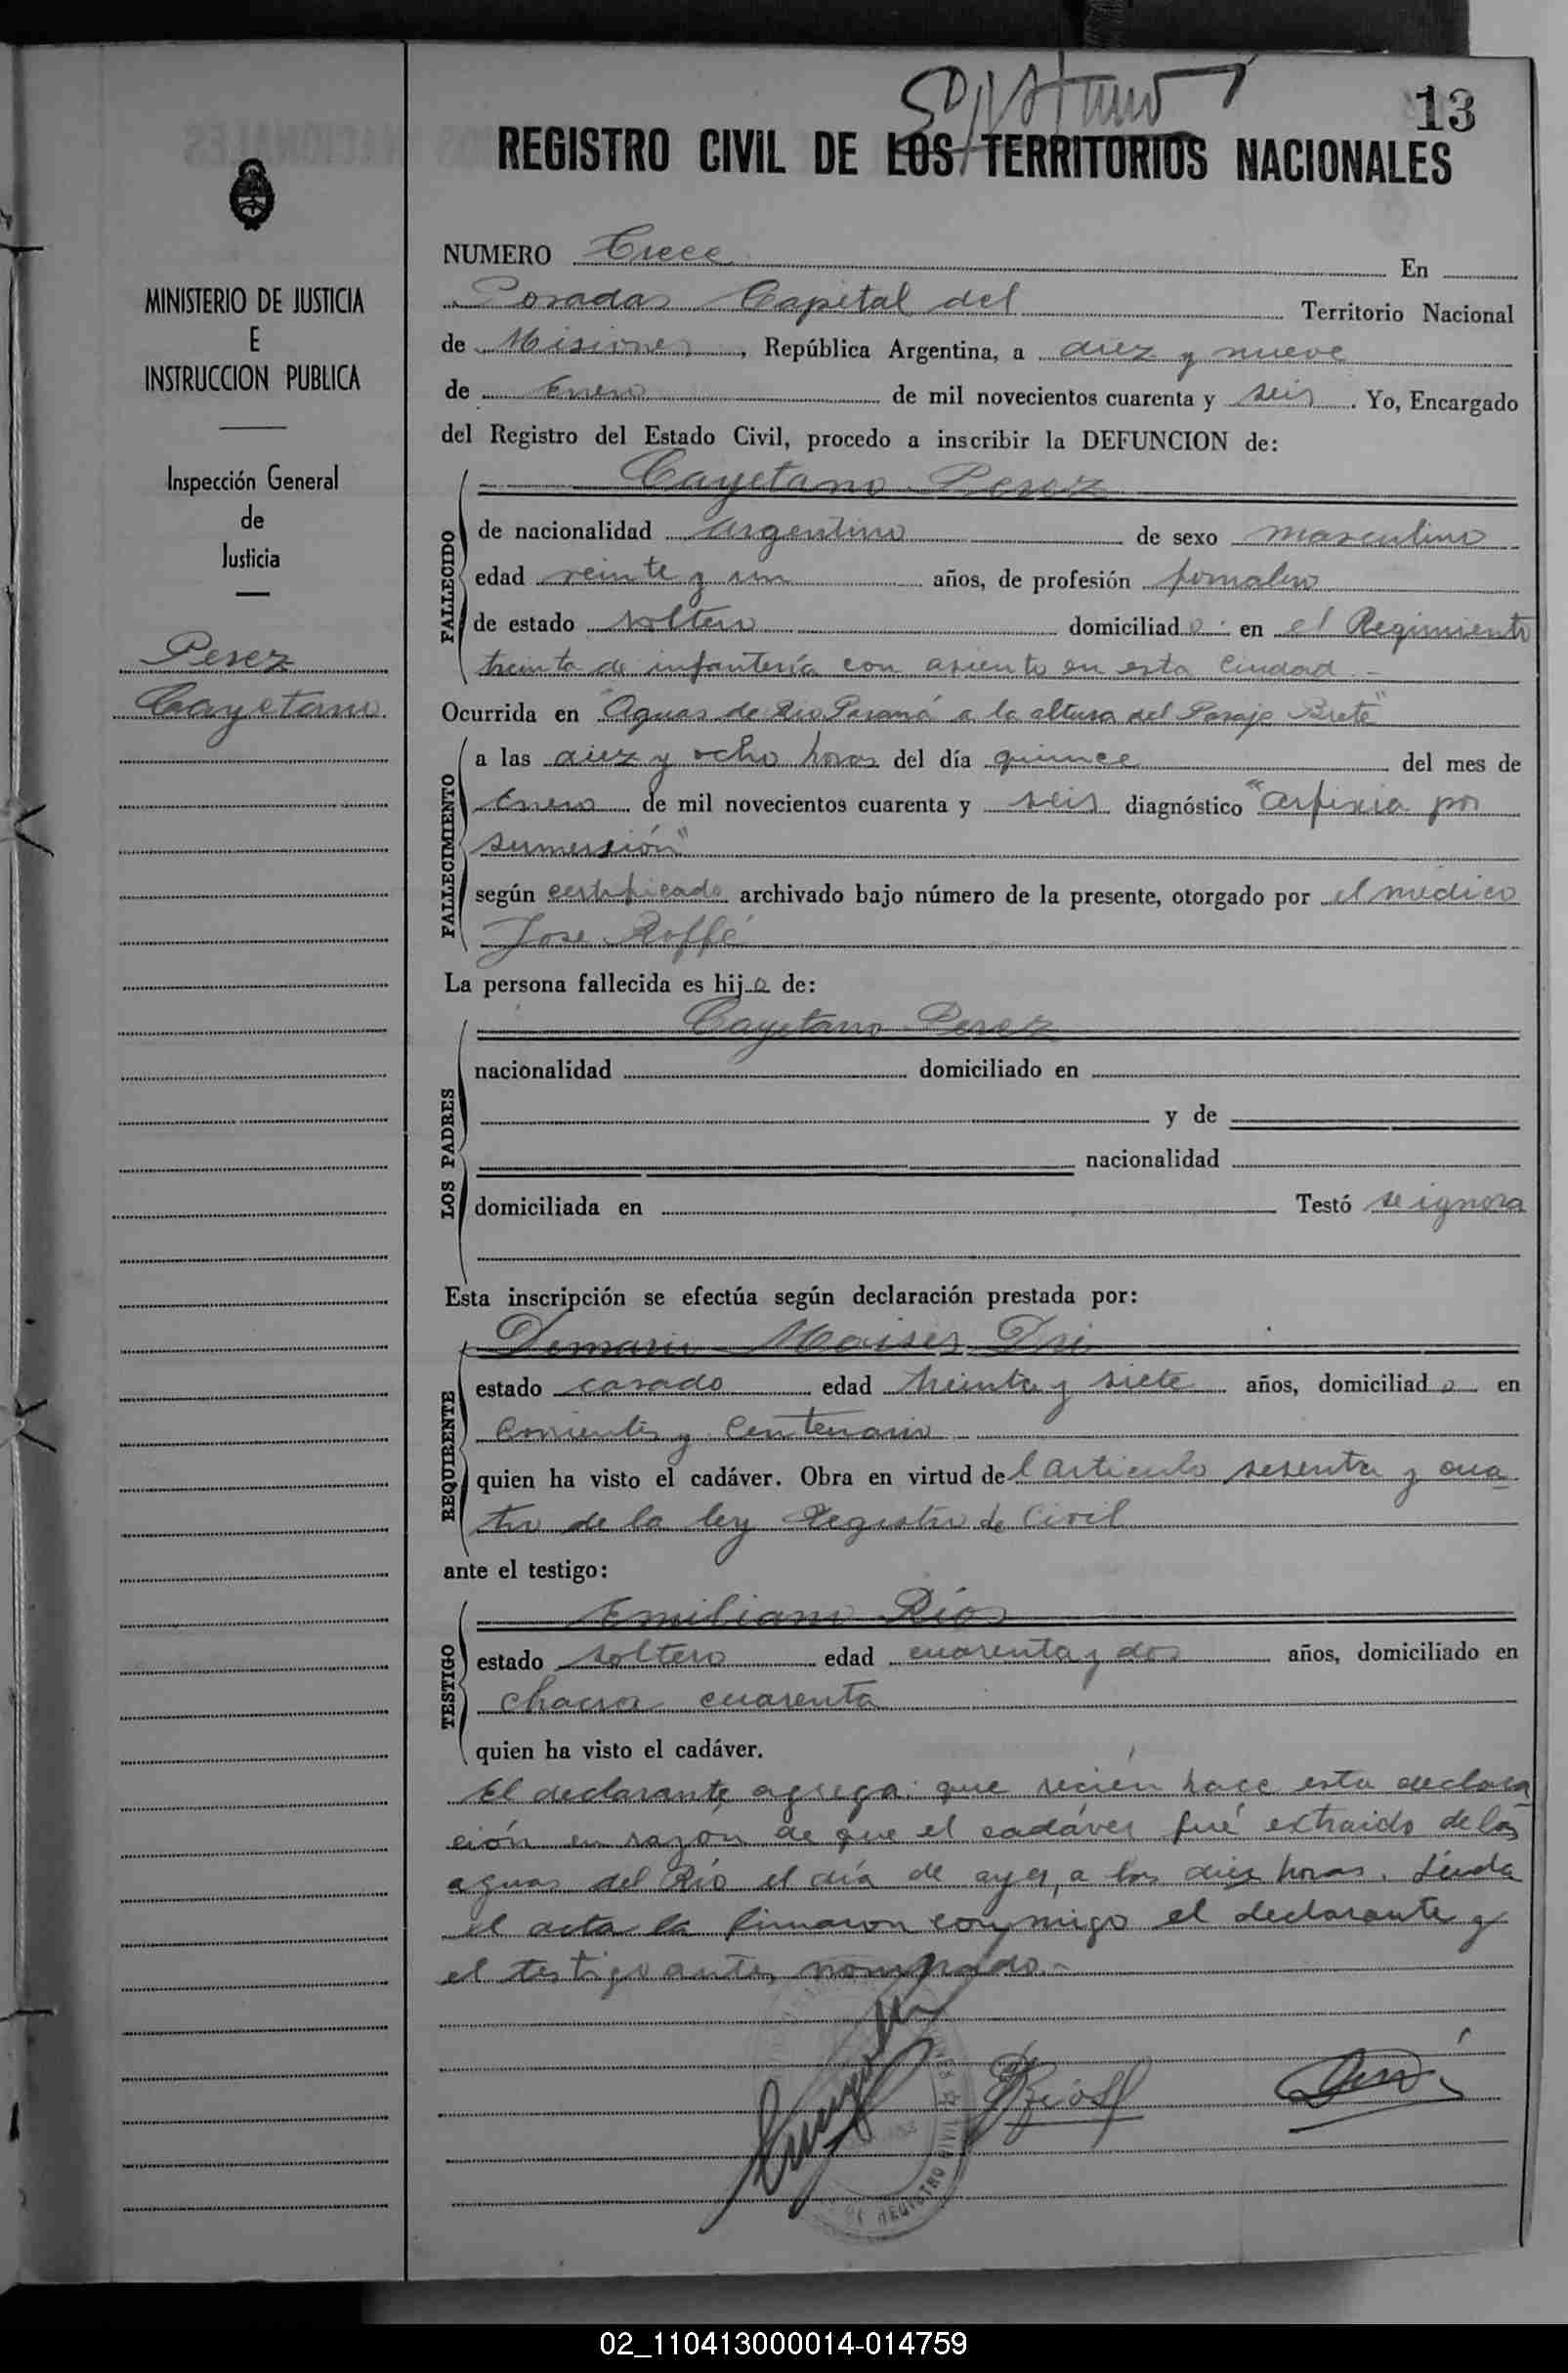 13
REGISTRO CIVIL DE LOS TERRITORIOS NACIONALES
MINISTERIO DE JUSTICIA
E
INSTRUCCION PUBLICA
Inspección General
de
Justicia
Perez
Cayetano
NUMERO Trece En
Posadas Capital del Territorio Nacional
de Misiones, República Argentina, a diez y nueve
de Enero de mil novecientos cuarenta y seis. Yo, Encargado
del Registro del Estado Civil, procedo a inscribir la DEFUNCION de:
Cayetano Perez
FALLECIDO
de nacionalidad argentino de sexo masculino
edad veinte y un años, de profesión jornalero
de estado soltero domiciliado en el Regimiento
treinta de infantería con asiento en esta Ciudad.-
Ocurrida en "Aguas de Rio Paraná a la altura del Paraje Brete"
FALLECIMIENTO
a las diez y ocho horas del día quince del mes de
Enero de mil novecientos cuarenta y seis diagnóstico "asfixia por
sumersión"
según certificado archivado bajo número de la presente, otorgado por el médico
Jose Roffé
La persona fallecida es hijo de:
LOS PADRES
Cayetano Perez
nacionalidad domiciliado en
y de
nacionalidad
domiciliada en Testó se ignora
Esta inscripción se efectúa según declaración prestada por:
REQUIRENTE
Moises Dri
estado casado edad treinta y siete años, domiciliado en
Corrientes y Centenario
quien ha visto el cadáver. Obra en virtud del articulo sesenta y cua
tro de la ley Registro de Civil
ante el testigo:
TESTIGO
Emiliano Ríos
estado soltero edad cuarenta y dos años, domiciliado en
chacra cuarenta
quien ha visto el cadáver.
El declarante agrega: que recién hace esta declara
ción en razon de que el cadáver fué extraido de las
aguas del Río el día de ayer, a las diez horas. Leida
el acta la firmaron conmigo el declarante y
el testigo antes nombrado.-
Rios
Dri
REGISTRO CIVIL
02_110413000014-014759